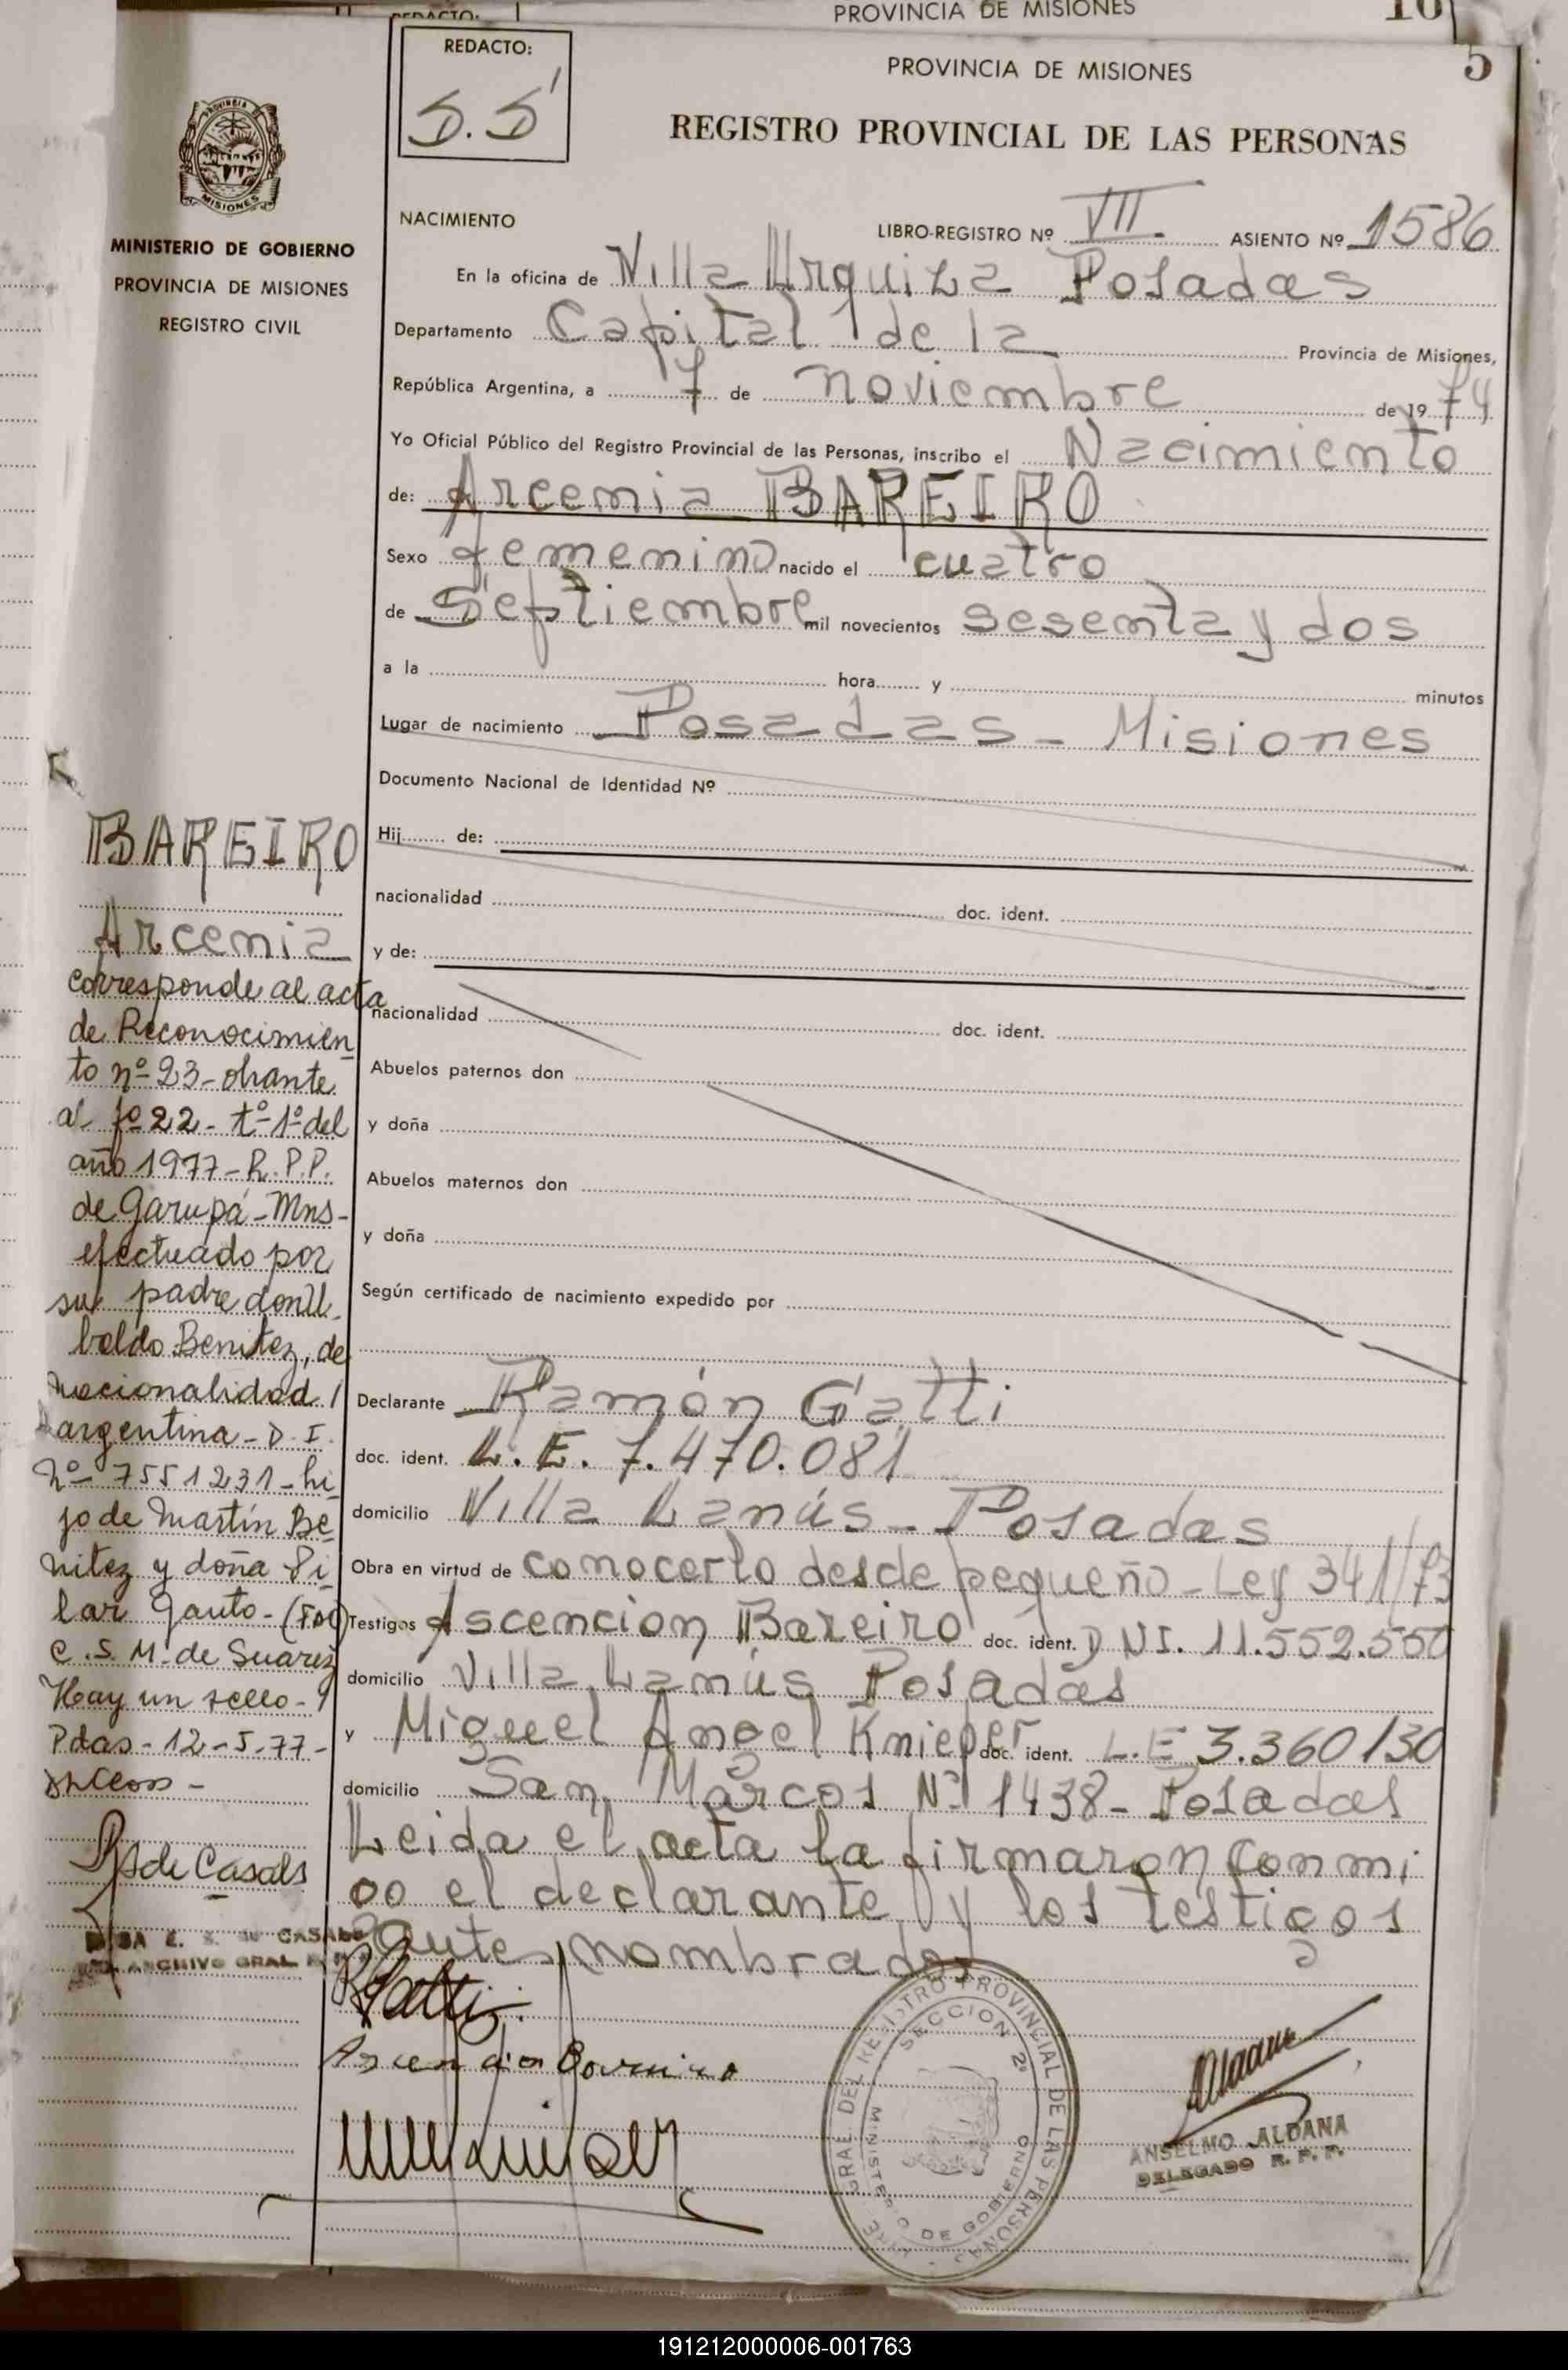 REDACTO:
PROVINCIA DE MISIONES
10
REDACTO:
S.S
PROVINCIA DE MISIONES
5
REGISTRO PROVINCIAL DE LAS PERSONAS
PROVINCIA
MISIONES
MINISTERIO DE GOBIERNO
PROVINCIA DE MISIONES
REGISTRO CIVIL
NACIMIENTO
LIBRO-REGISTRO Nº VII- ASIENTO Nº 1586
En la oficina de Villa Urquiza Posadas
Departamento Capital de la Provincia de Misiones,
República Argentina, a 7 de noviembre de 1974
Yo Oficial Público del Registro Provincial de las Personas, inscribo el Nacimiento
de: Arcenia BAREIRO
Sexo femenino nacido el cuatro
de Septiembre mil novecientos sesenta y dos
a la hora y minutos
Lugar de nacimiento Posadas - Misiones
Documento Nacional de Identidad Nº
Hij de:
nacionalidad doc. ident.
y de:
nacionalidad doc. ident.
Abuelos paternos don
y doña
Abuelos maternos don
y doña
Según certificado de nacimiento expedido por
Declarante Ramón Gatti
doc. ident. L.E. 7.470.081
domicilio Villa Lanús - Posadas
Obra en virtud de conocerlo desde pequeño - Ley 341/73
Testigos Ascencion Bareiro doc. ident. DNI. 11.552.550
domicilio Villa Lanús Posadas
y Miguel Angel Knieper doc. ident. L.E 3.360130
domicilio San Marcos Nº 1438 - Posadas
Leida el acta la firmaron conmi
go el declarante y los testigos
antes nombrados
BAREIRO
Arcenia
corresponde al acta
de Reconocimien
to nº 23 - obrante
al fº 22 - tº 1º del
año 1977 - R.P.P.
de Garupá - Mns -
efectuado por
su padre don Ul
baldo Benitez, de
nacionalidad /
argentina - D.I.
Nº 7551231 - hi
jo de Martín Be
nitez y doña Pi
lar Gauto - (FDO)
C.S.M. de Suarez
Hay un sello -
Pdas - 12-5-77 -
de Casals
CASALS
ARCHIVO GRAL
RGatti
Ascencion Bareiro
GRAL DEL REGISTRO PROVINCIAL DE LAS PERSONAS
SECCION 2º
MINISTERIO DE GOBIERNO
ANSELMO ALDANA
DELEGADO R. P. P.
191212000006-001763